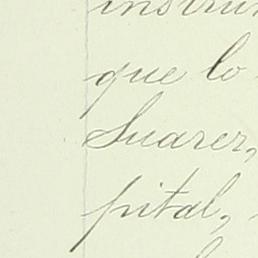 instru
que lo
Suarez,
pital,